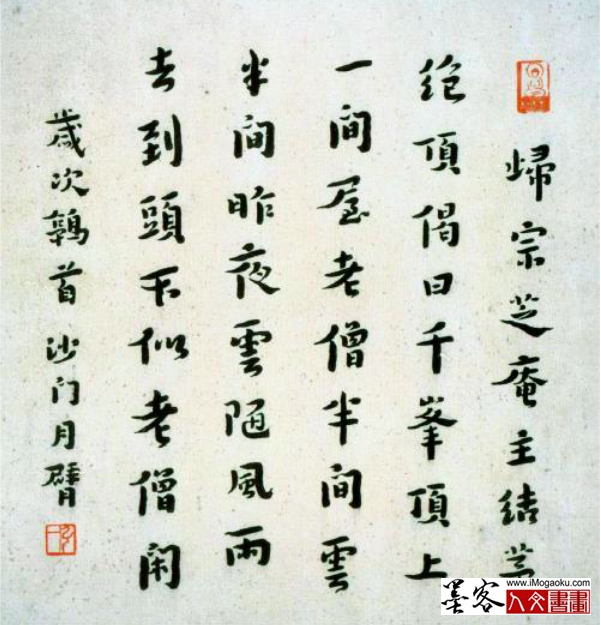 歸宗芝庵主結茅
絕頂偈曰千峯頂上
一間屋老僧半間雲
半間昨夜雲隨風雨
去到頭不似老僧閑
歲次鶉首沙门月臂
墨客
www.iMogaoku.com
人文書畫